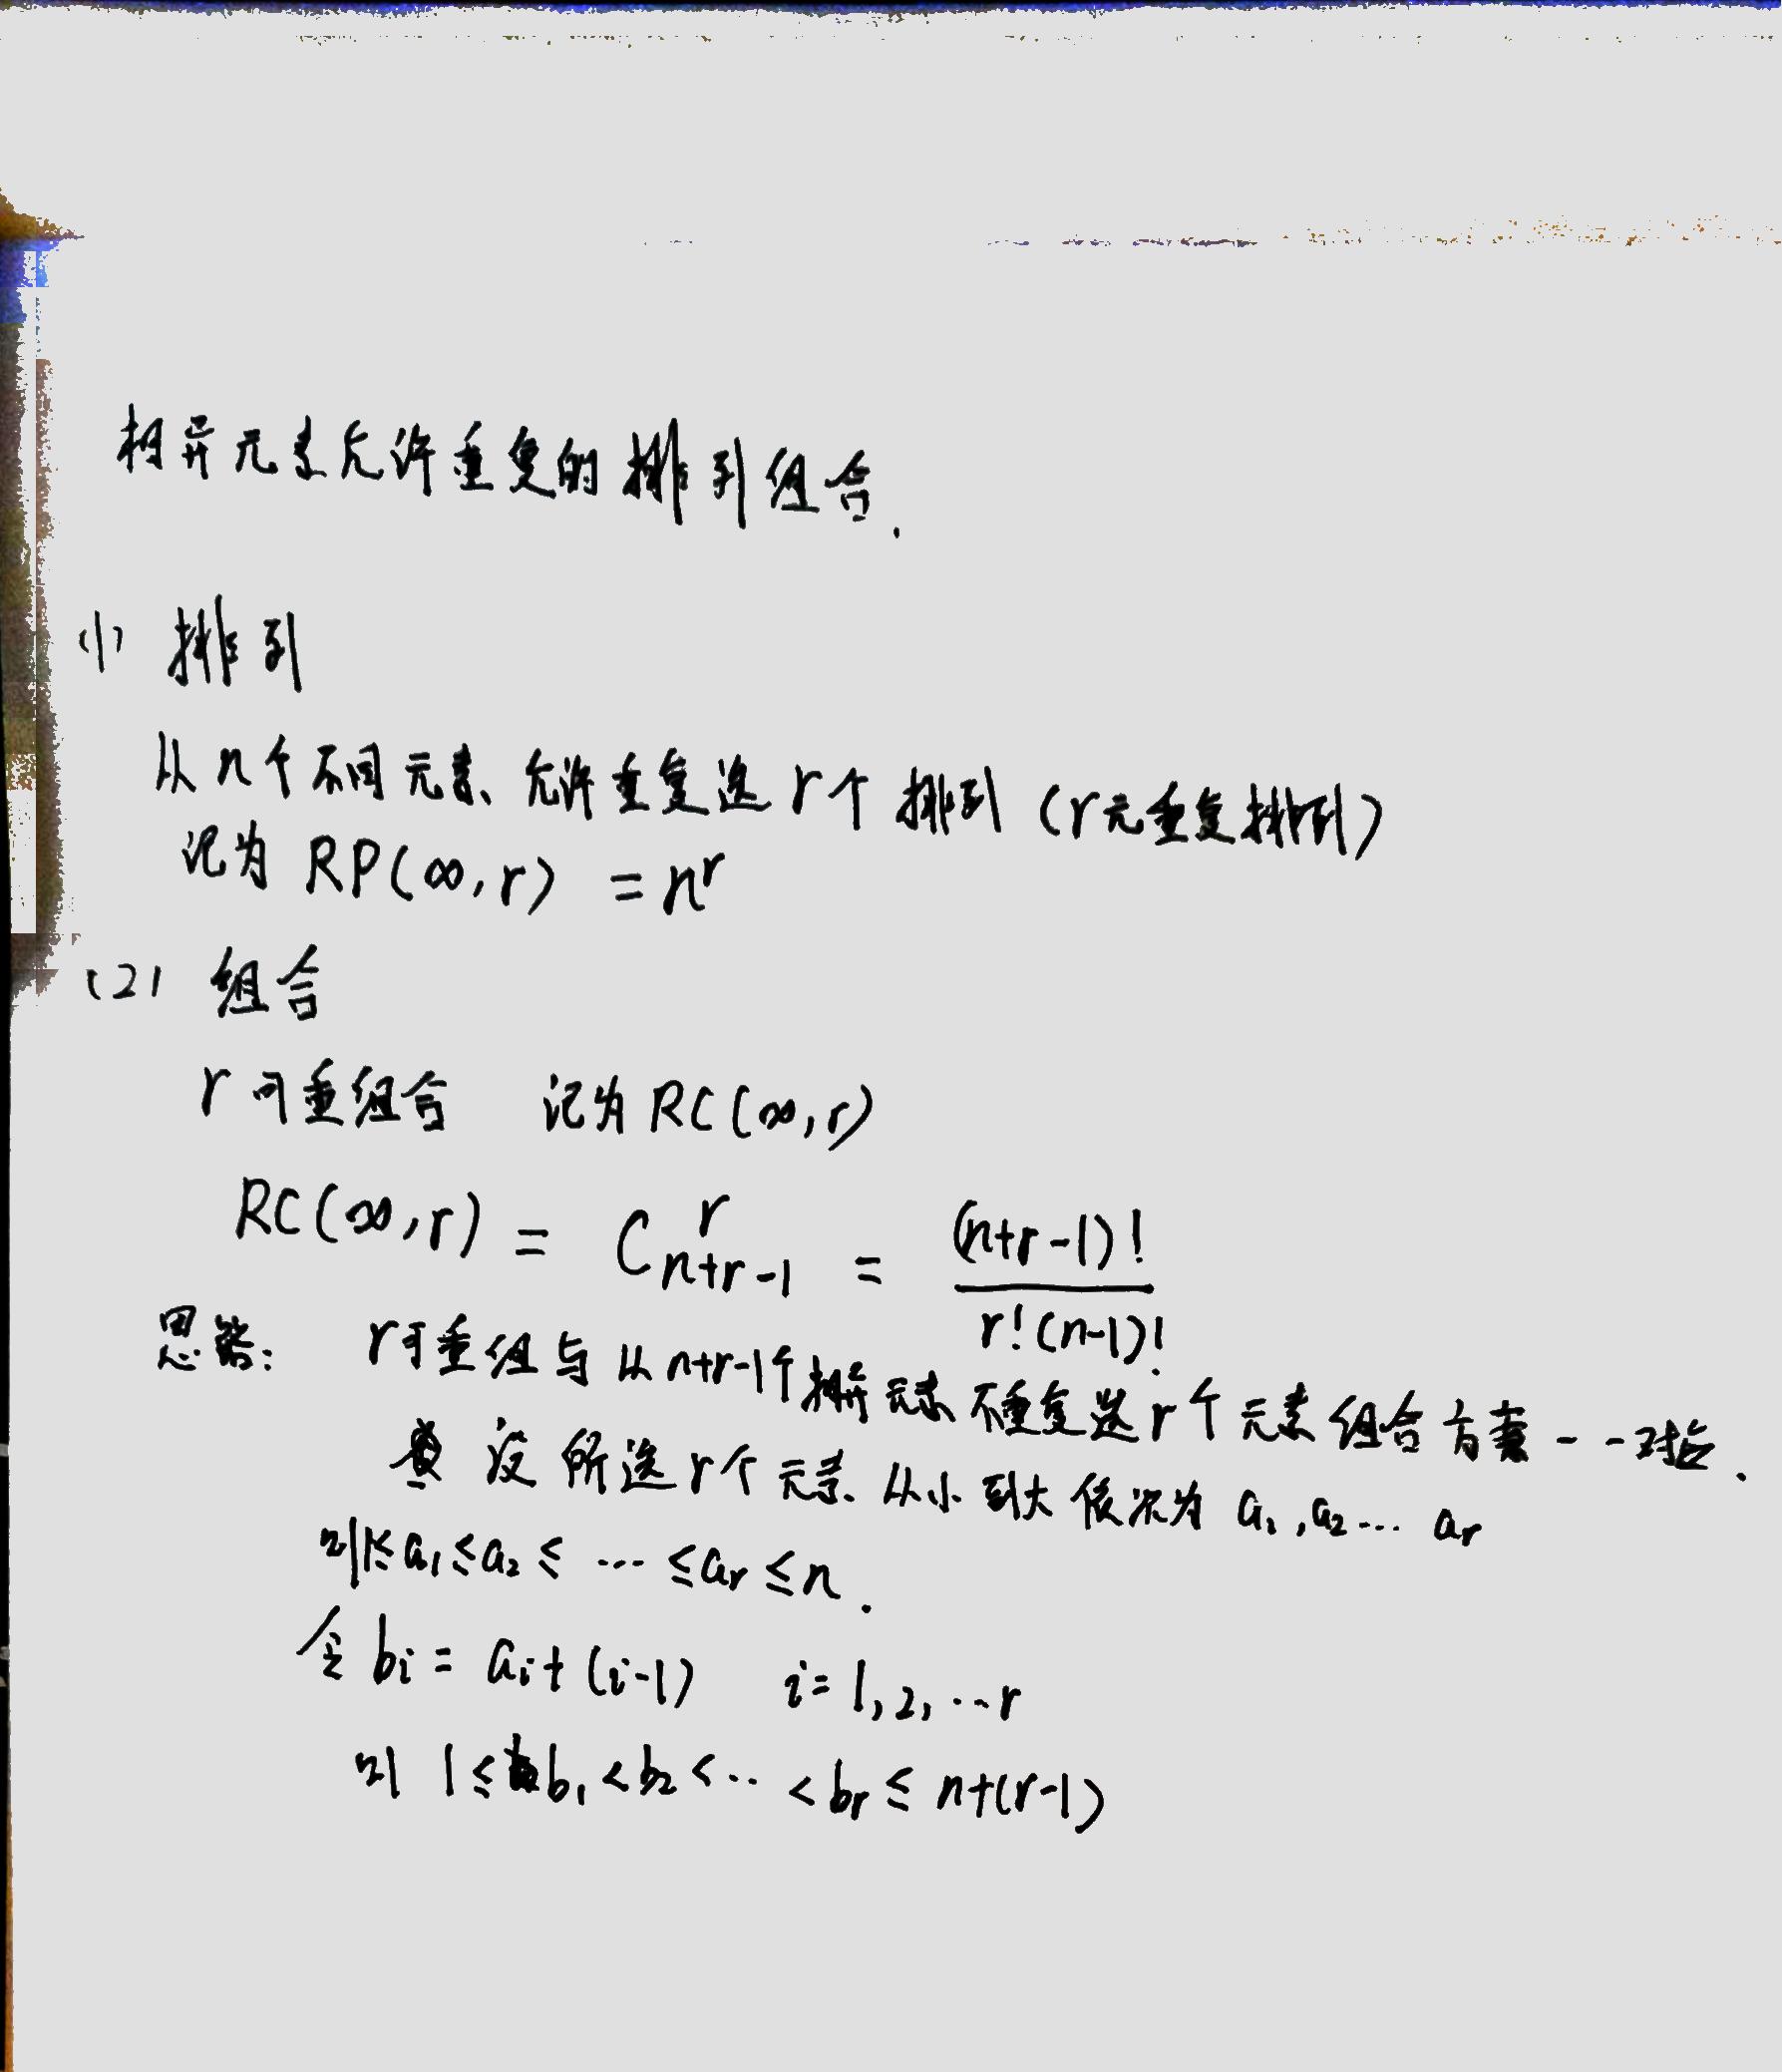 相异元素允许重复的排列组合.
(1) 排列
从n个不同元素、允许重复选r个排列 (r元重复排列)
记为 RP(∞,r) = n^r
(2) 组合
r可重组合 记为RC(∞,r)
RC(∞,r) = C_{n+r-1}^{r} = \frac{(n+r-1)!}{r!(n-1)!}
思路: r可重组与从n+r-1个相异元素不重复选r个元素组合方案一一对应.
设所选r个元素从小到大依次为 a₁,a₂… aᵣ
则1≤a₁≤a₂≤ … ≤aᵣ≤n.
令 bᵢ = aᵢ+(i-1) i=1,2,…r
则 1≤b₁<b₂<… <bᵣ≤ n+(r-1)